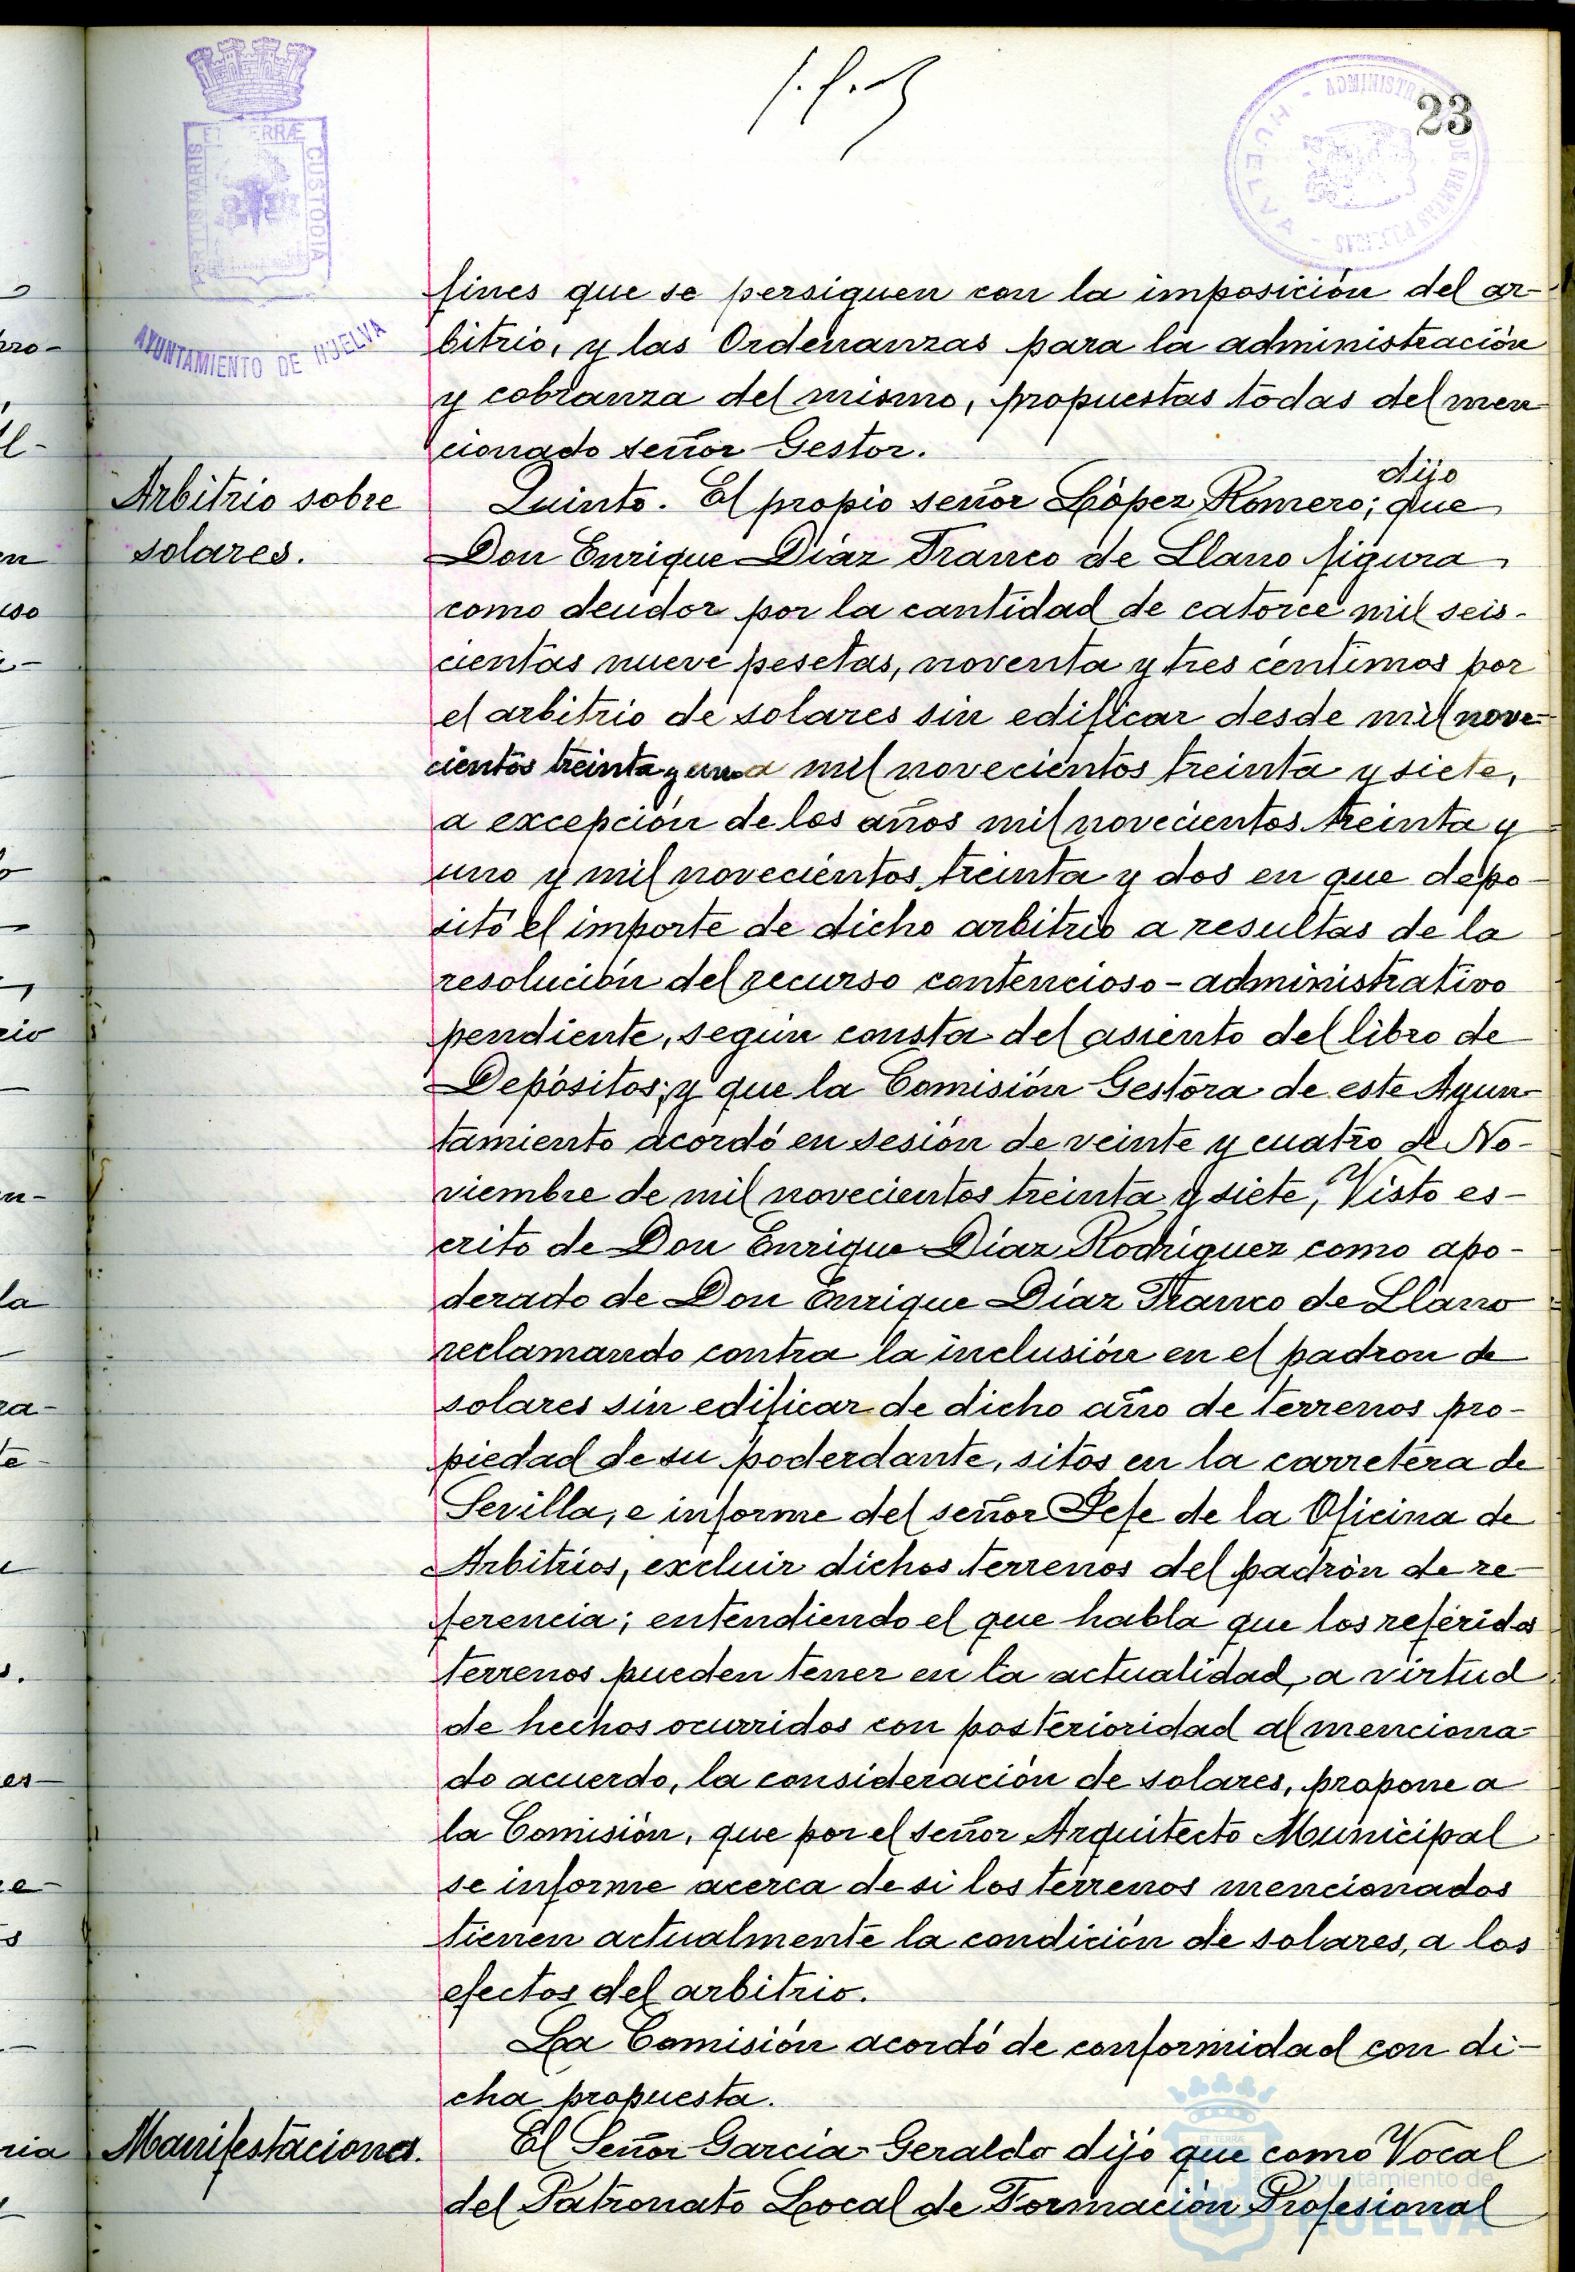 23
PORTUS MARIS ET TERRÆ CUSTODIA
AYUNTAMIENTO DE HUELVA
fines que se persiguen con la imposición del ar-
bitrio, y las Ordenanzas para la administración
y cobranza del mismo, propuestas todas del men
cionado señor Gestor.
Arbitrio sobre
solares.
dijo
Quinto. El propio señor López Romero; que
Don Enrique Díaz Franco de Llano figura
como deudor por la cantidad de catorce mil seis-
cientas nueve pesetas, noventa y tres céntimos por
el arbitrio de solares sin edificar desde mil nove-
cientos treinta y uno a mil novecientos treinta y siete,
a excepción de los años mil novecientos treinta y
uno y mil novecientos treinta y dos en que depo-
sitó el importe de dicho arbitrio a resultas de la
resolución del recurso contencioso-administrativo
pendiente, según consta del asiento del libro de
Depósitos; y que la Comisión Gestora de este Ayun-
tamiento acordó en sesión de veinte y cuatro de No-
viembre de mil novecientos treinta y siete, Visto es-
crito de Don Enrique Díaz Rodríguez como apo-
derado de Don Enrique Díaz Franco de Llano
reclamando contra la inclusión en el padron de
solares sin edificar de dicho año de terrenos pro-
piedad de su poderdante, sitos en la carretera de
Sevilla, e informe del señor Jefe de la Oficina de
Arbitrios, excluir dichos terrenos del padrón de re-
ferencia; entendiendo el que habla que los referidos
terrenos pueden tener en la actualidad, a virtud
de hechos ocurridos con posterioridad al menciona-
do acuerdo, la consideración de solares, propone a
la Comisión, que por el señor Arquitecto Municipal
se informe acerca de si los terrenos mencionados
tienen actualmente la condición de solares, a los
efectos del arbitrio.
La Comisión acordó de conformidad con di-
cha propuesta.
Manifestaciones.
El Señor García Geraldo dijo que como Vocal
del Patronato Local de Formación Profesional
ayuntamiento de
HUELVA